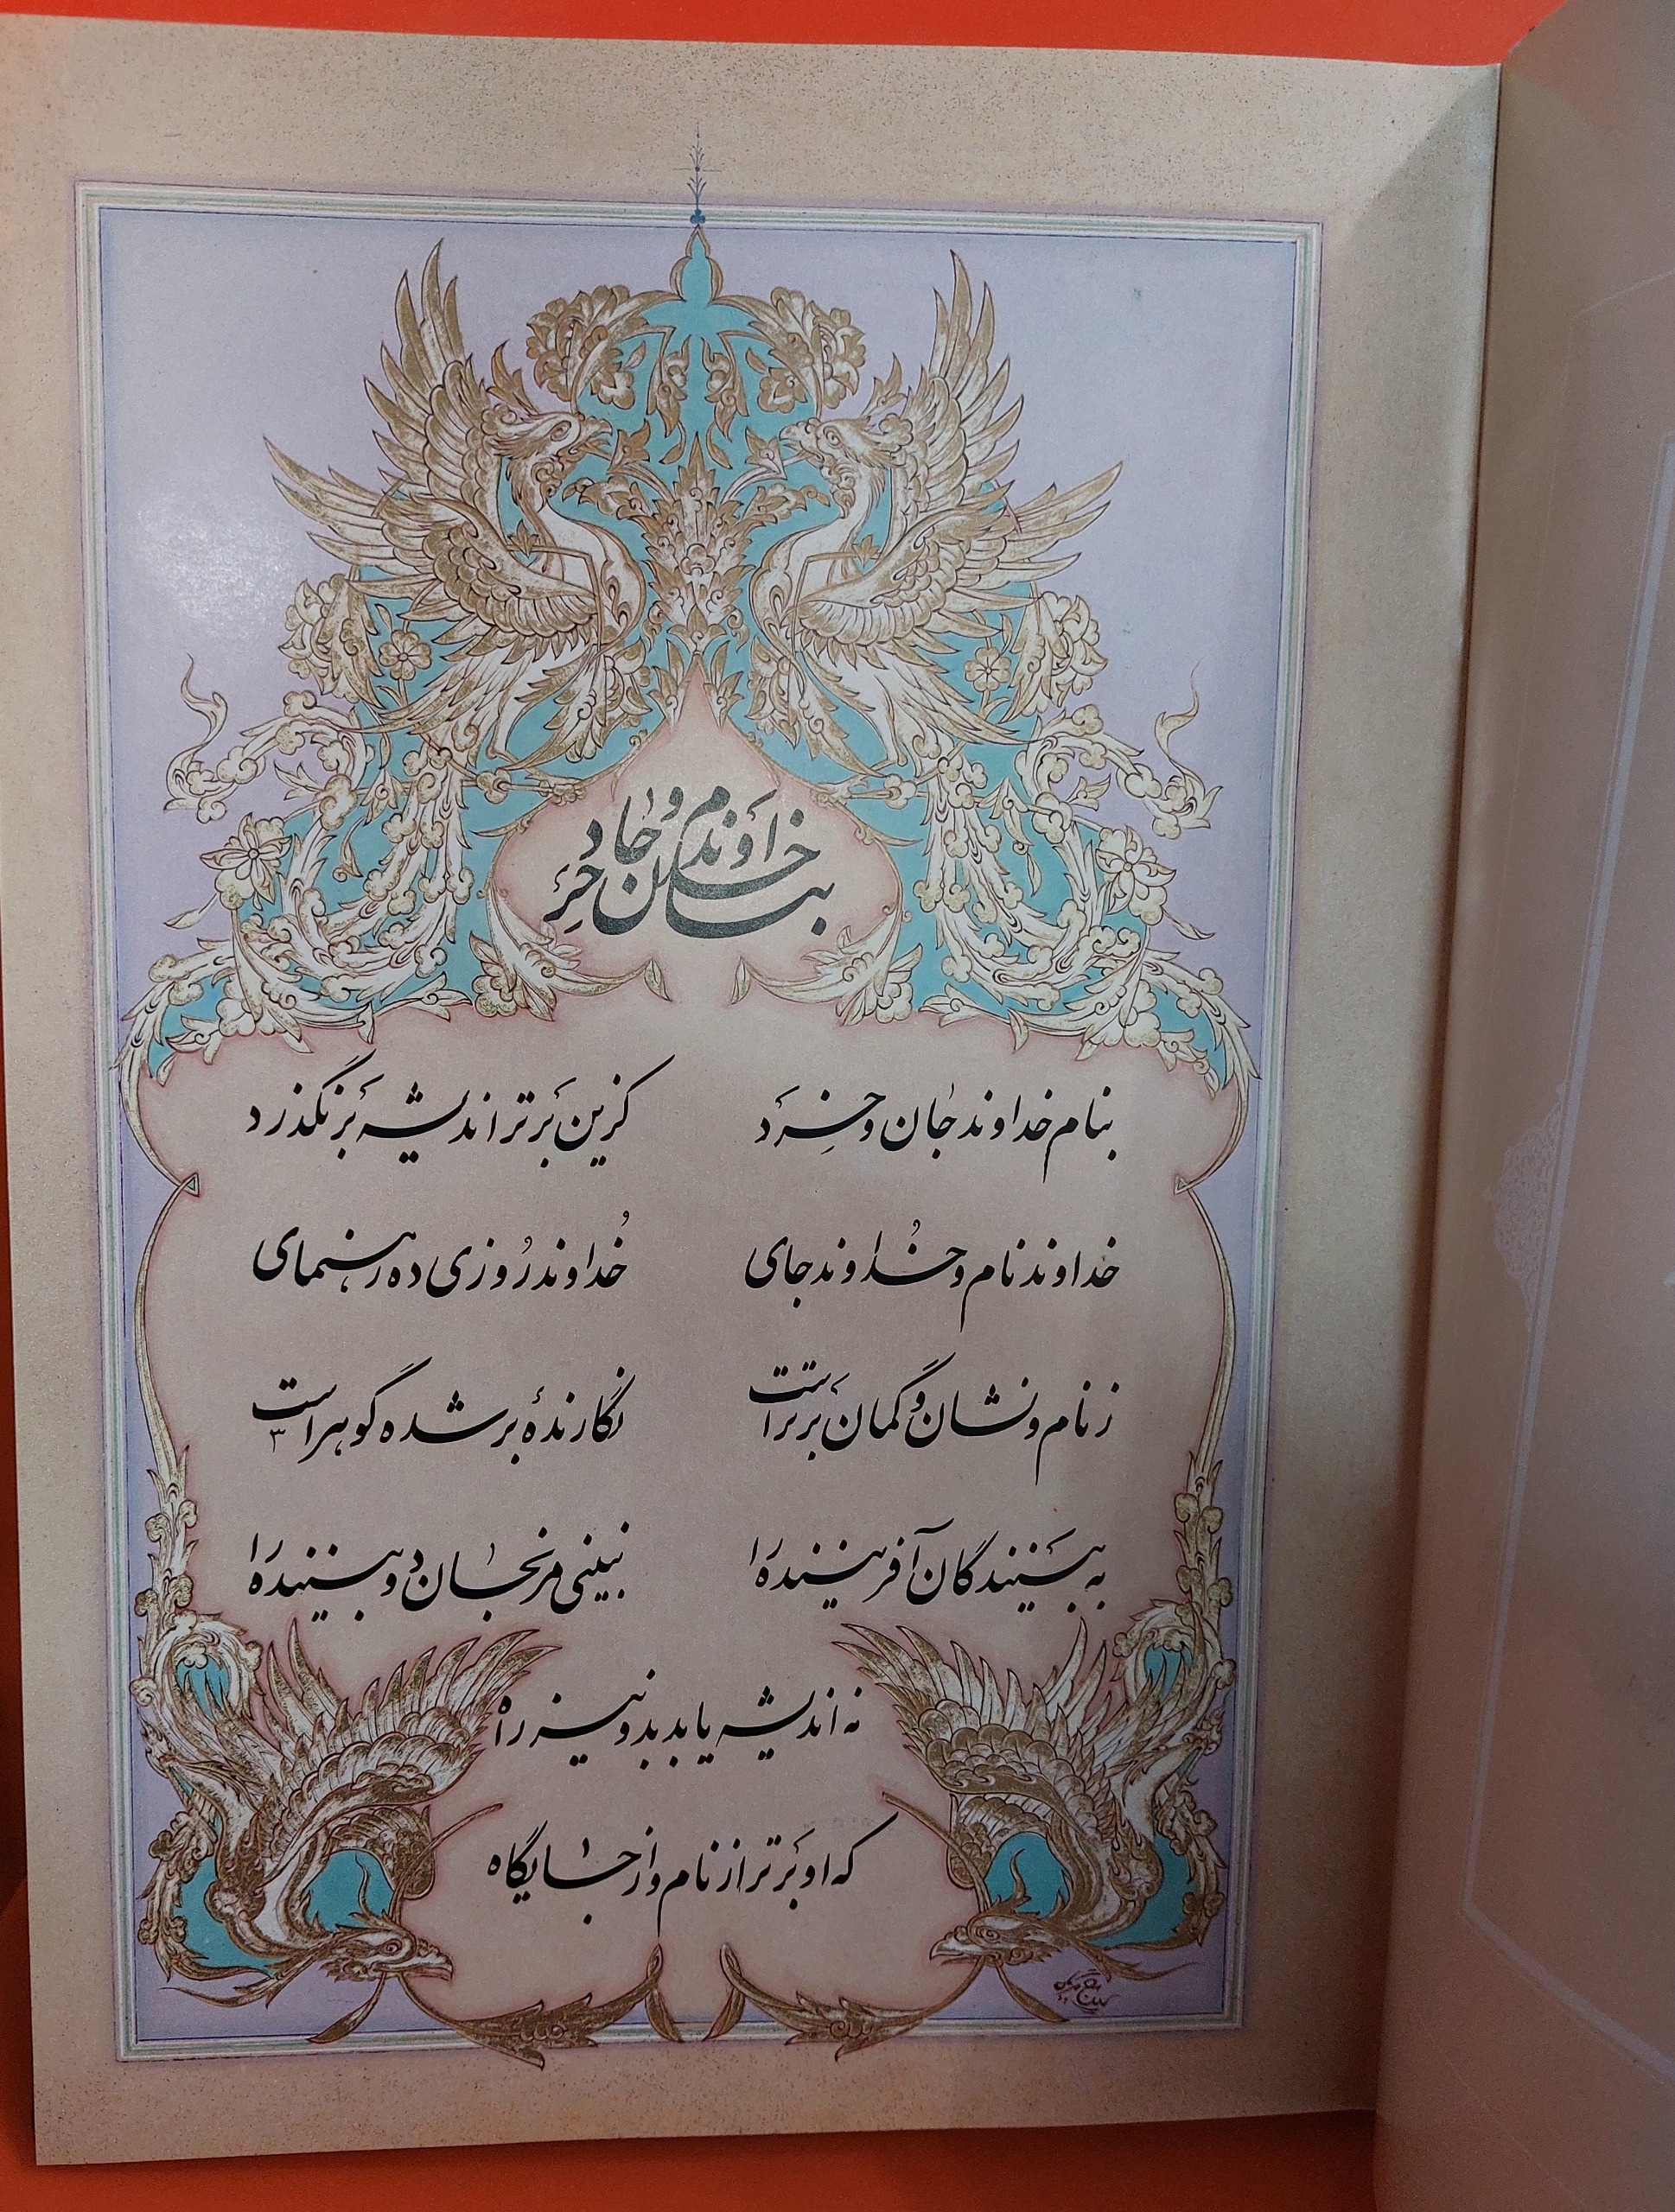 بنام خداوند جان و خرد
بنام خداوند جان و خرد کزین برتر اندیشه برنگذرد
خداوند نام و خداوند جای خداوند روزی ده رهنمای
ز نام و نشان و گمان برتر است نگارندهٔ بر شده گوهر است
به بینندگان آفریننده را نبینی مرنجان دو بیننده را
نه اندیشه یابد بدو نیز راه
که او برتر از نام و از جایگاه